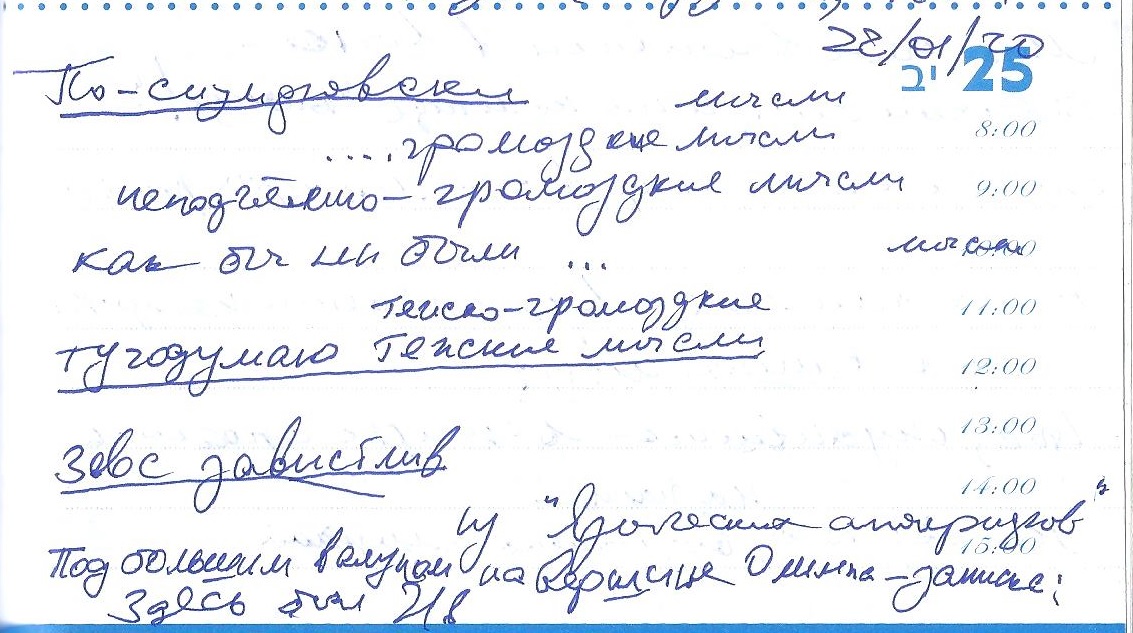 22/01/20
י"ב 25
По-сизифовски мысли
8:00
....громоздкие мысли
неподъёмно-громоздкие мысли
9:00
как бы ни были ... мысли
10:00
тяжко-громоздкие
11:00
тугодумаю тяжкие мысли
12:00
13:00
Зевс завистлив
14:00
из " апокрифов"
15:00
Под большим валуном на вершине Олимпа-записка:
Здесь был